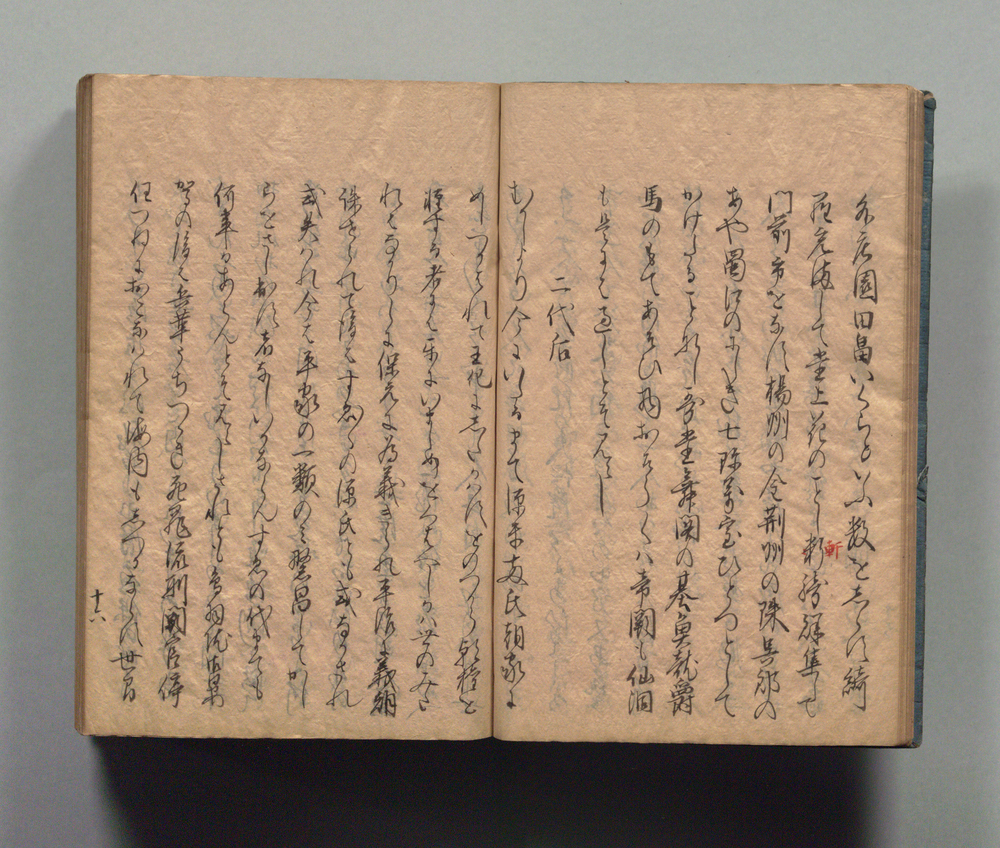 外庄園田畠いくらといふ数をしらす綺
羅充満して堂上花のことし軒騎群集して
斬
門前市をなす楊州の金荊州の珠呉郡の
あや蜀江のにしき七珍万宝ひとつとして
かけたることなし歌堂舞閣の基魚龍爵
馬のもてあそひ物おそらくハ帝闕も仙洞
も是にはすきしとそみえし
二代后
むかしより今にいたるまて源平両氏朝家に
めしつかはれて王化にしたかはすをのつから朝権を
軽する者にはたかひにいましめをくはへしかハ世のみたれ
れもなかりしに保元に為義きられ平治に義朝
誅せられて後はすゑ〳〵の源氏とも或なかされ
或失はれ今は平家の一類のミ繁昌してかし
らをさし出す者なしいかならんすゑの代まても
何事かあらんとそみえしされとも鳥羽院御晏
駕の後は兵革うちつゝき死罪流刑闕官停
任つねにおこなはれて海内もしつかならす世間
十六